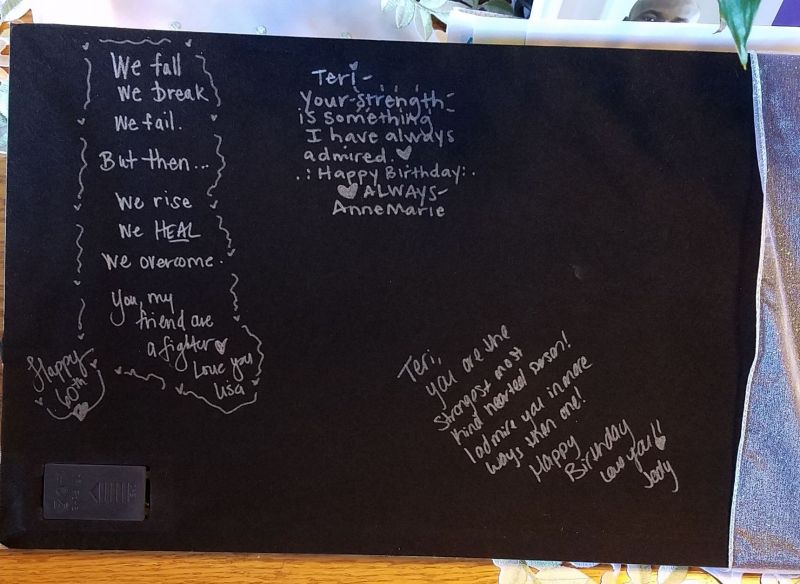 We fall
We break
We fail.
But then...
We rise
We HEAL
We overcome.
You, my
friend are
a fighter
Love you
Lisa
Happy
60th
Teri -
Your strength
is something
I have always
admired.
Happy Birthday
ALWAYS-
AnneMarie
Teri,
you are the
strongest most
kind hearted person!
I admire you in more
ways then one!
Happy
Birthday
Love you!!
Jody